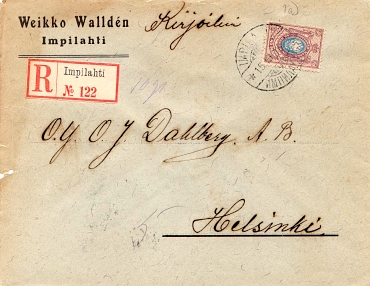 Weikko Walldén
Impilahti
Kirjoitti
R
Impilahti
№ 122
10 gr.
O.Y. O. J. Dahlberg. A. B.
Helsinki.